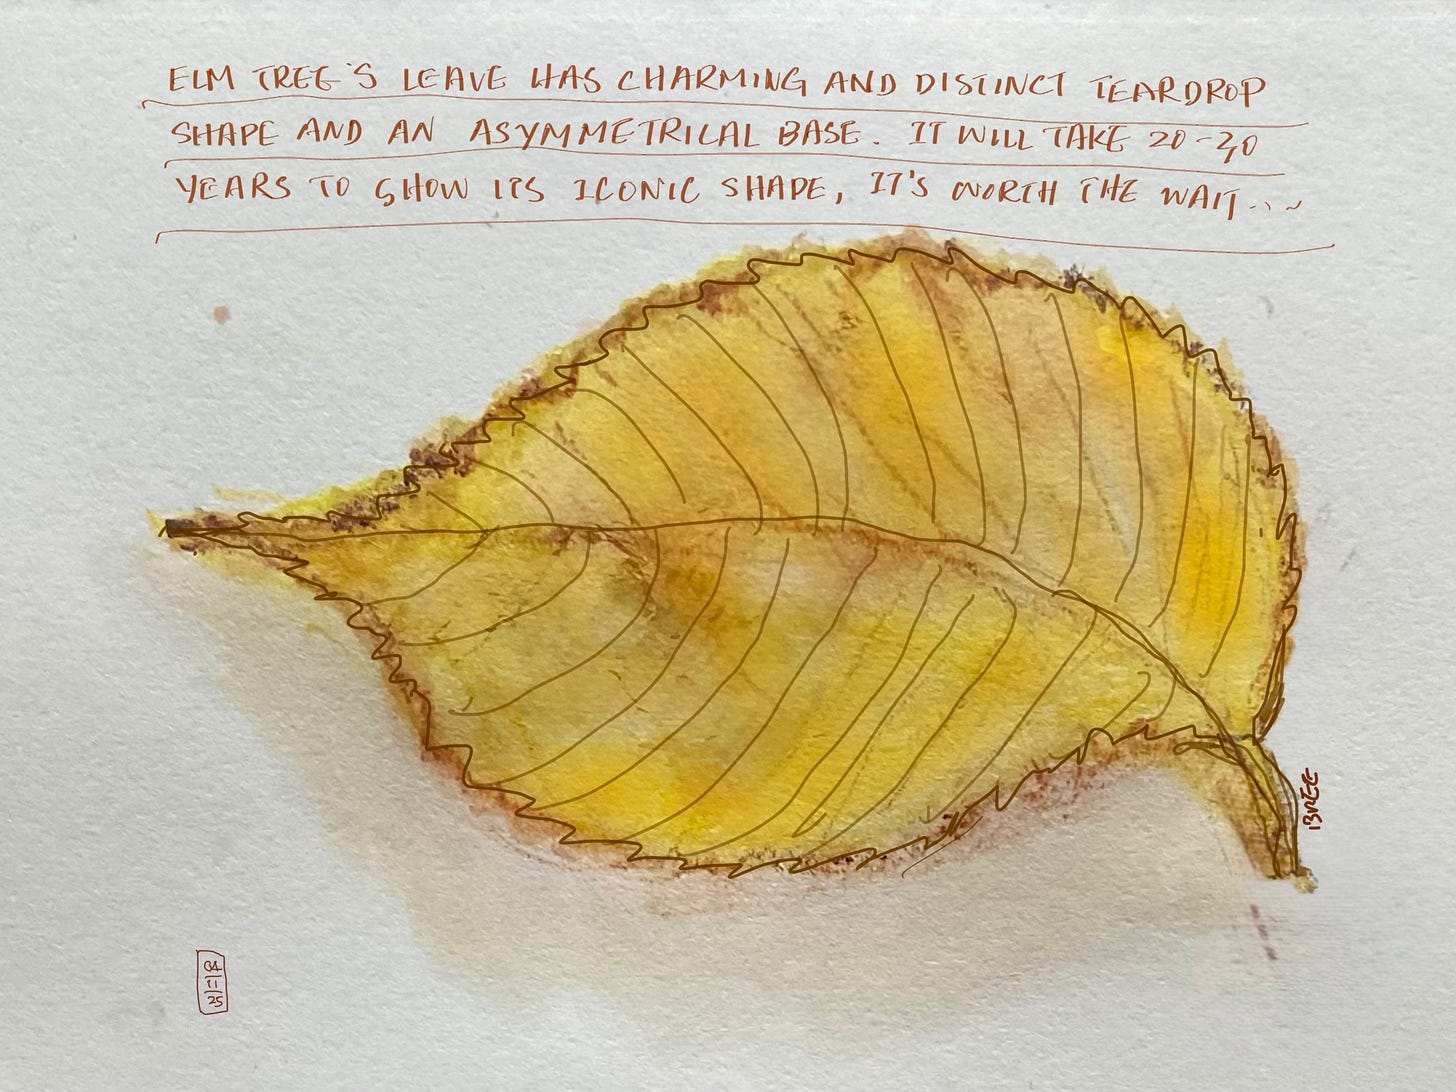 ELM TREE'S LEAVE HAS CHARMING AND DISTINCT TEARDROP
SHAPE AND AN ASYMMETRICAL BASE. IT WILL TAKE 20-30
YEARS TO SHOW ITS ICONIC SHAPE, IT'S WORTH THE WAIT...~
BREE
04
11
25